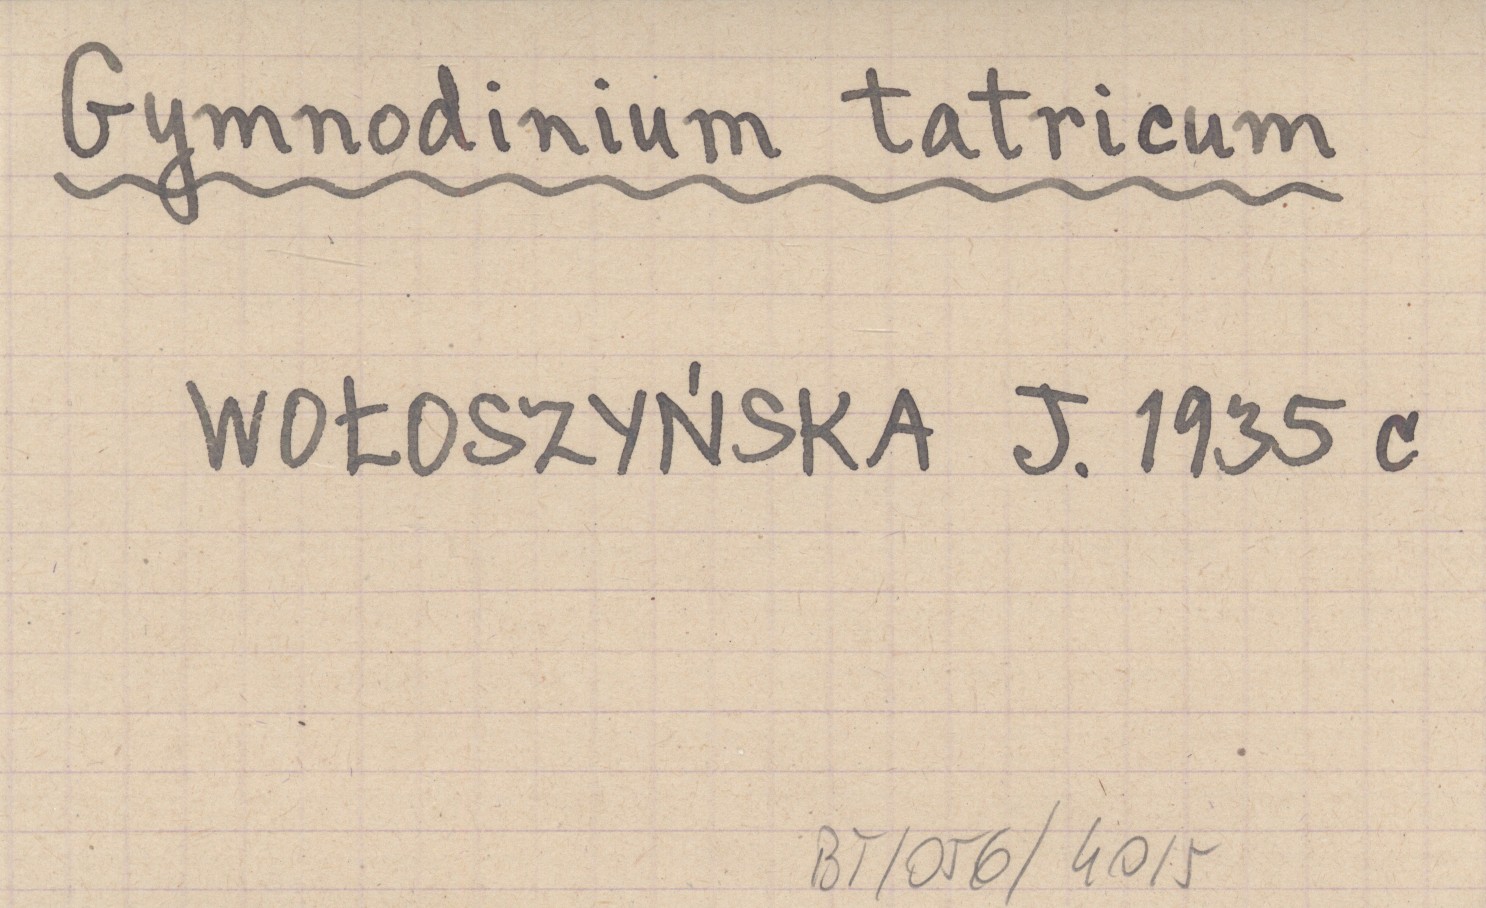 Gymnodinium tatricum
WOŁOSZYŃSKA J. 1935 c
BT/056/4015